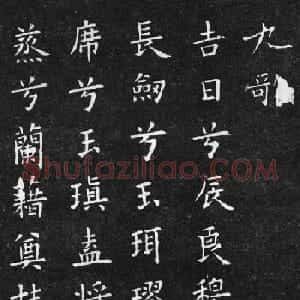 九歌
吉日兮辰良穆
長劒兮玉珥璆
席兮玉瑱盍将
蒸兮蘭藉奠桂
Shufaziliao.com